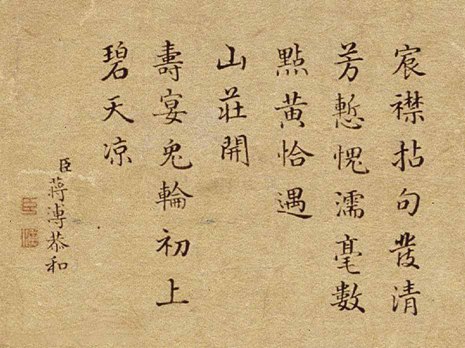 宸襟拈句發清
芳慙愧濡毫數
點黃恰遇
山莊開
壽宴兎輪初上
碧天凉
臣蔣溥恭和